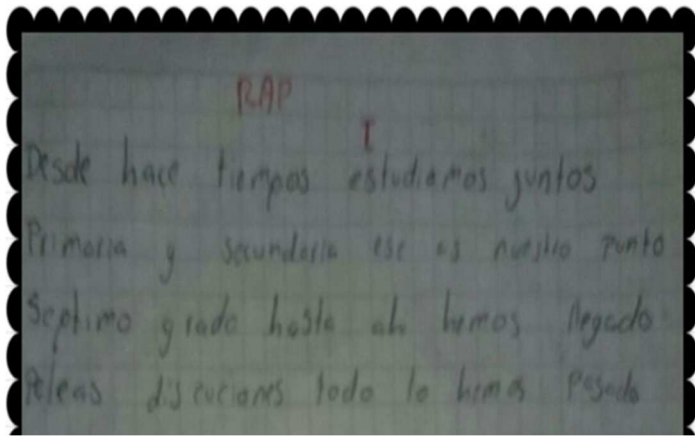 RAP
I
Desde hace tiempos estudiamos juntos
Primaria y secundaria ese es nuestro punto
Septimo grado hasta ahi hemos llegado
Peleas discuciones todo lo hemos pasado